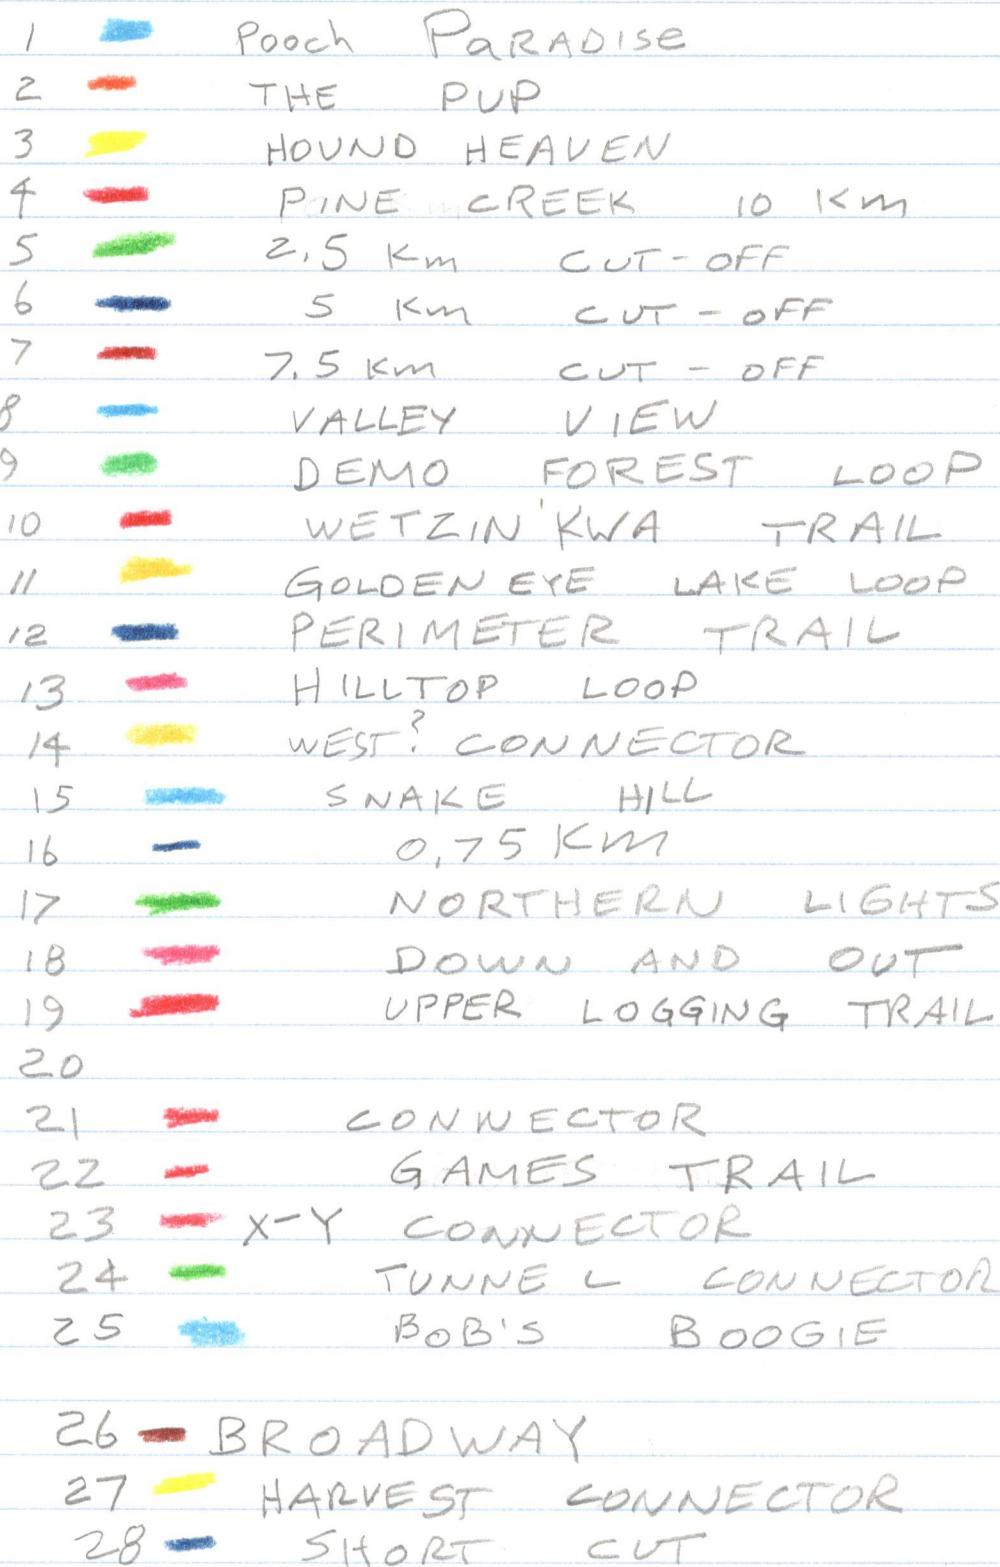 1 Pooch PARADISE
2 THE PUP
3 HOUND HEAVEN
4 PINE CREEK 10 Km
5 2.5 Km CUT-OFF
6 5 Km CUT-OFF
7 7.5 Km CUT-OFF
8 VALLEY VIEW
9 DEMO FOREST LOOP
10 WETZIN'KWA TRAIL
11 GOLDEN EYE LAKE LOOP
12 PERIMETER TRAIL
13 HILLTOP LOOP
14 WEST? CONNECTOR
15 SNAKE HILL
16 0,75 Km
17 NORTHERN LIGHTS
18 DOWN AND OUT
19 UPPER LOGGING TRAIL
20
21 CONNECTOR
22 GAMES TRAIL
23 X-Y CONNECTOR
24 TUNNEL CONNECTOR
25 BOB'S BOOGIE
26 BROADWAY
27 HARVEST CONNECTOR
28 SHORT CUT